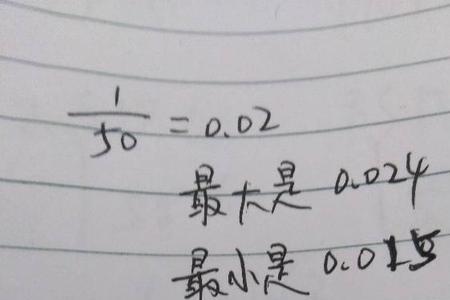 1/50 = 0.02
最大是 0.024
最小是 0.015